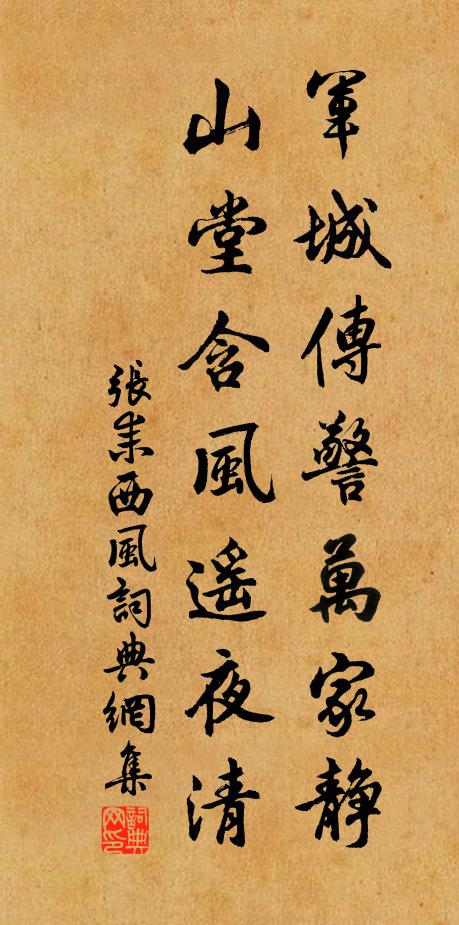 軍城傳警萬家静
山堂含風遥夜清
張耒西風詞典網集
詞典网印